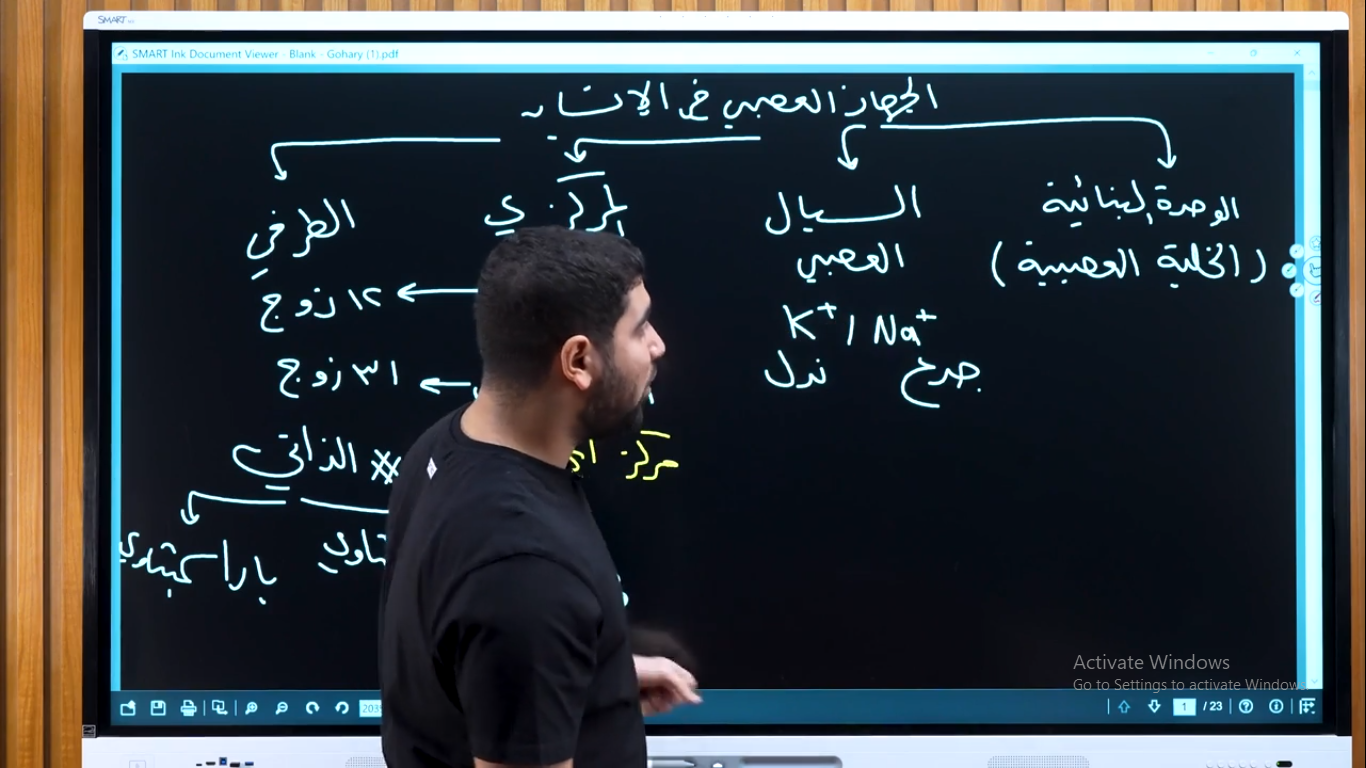 SMART
SMART Ink Document Viewer - Blank - Gohary (1).pdf
الجهاز العصبي في الإنسان
الوحدة البنائية
(الخلية العصبية)
السيال
العصبي
K+ / Na+
جرح نزل
المركزي
مركز
الطرفي
١٢ زوج
٣١ زوج
# الذاتي
باراسمبثاوي
Activate Windows
Go to Settings to activate Windows
1 / 23